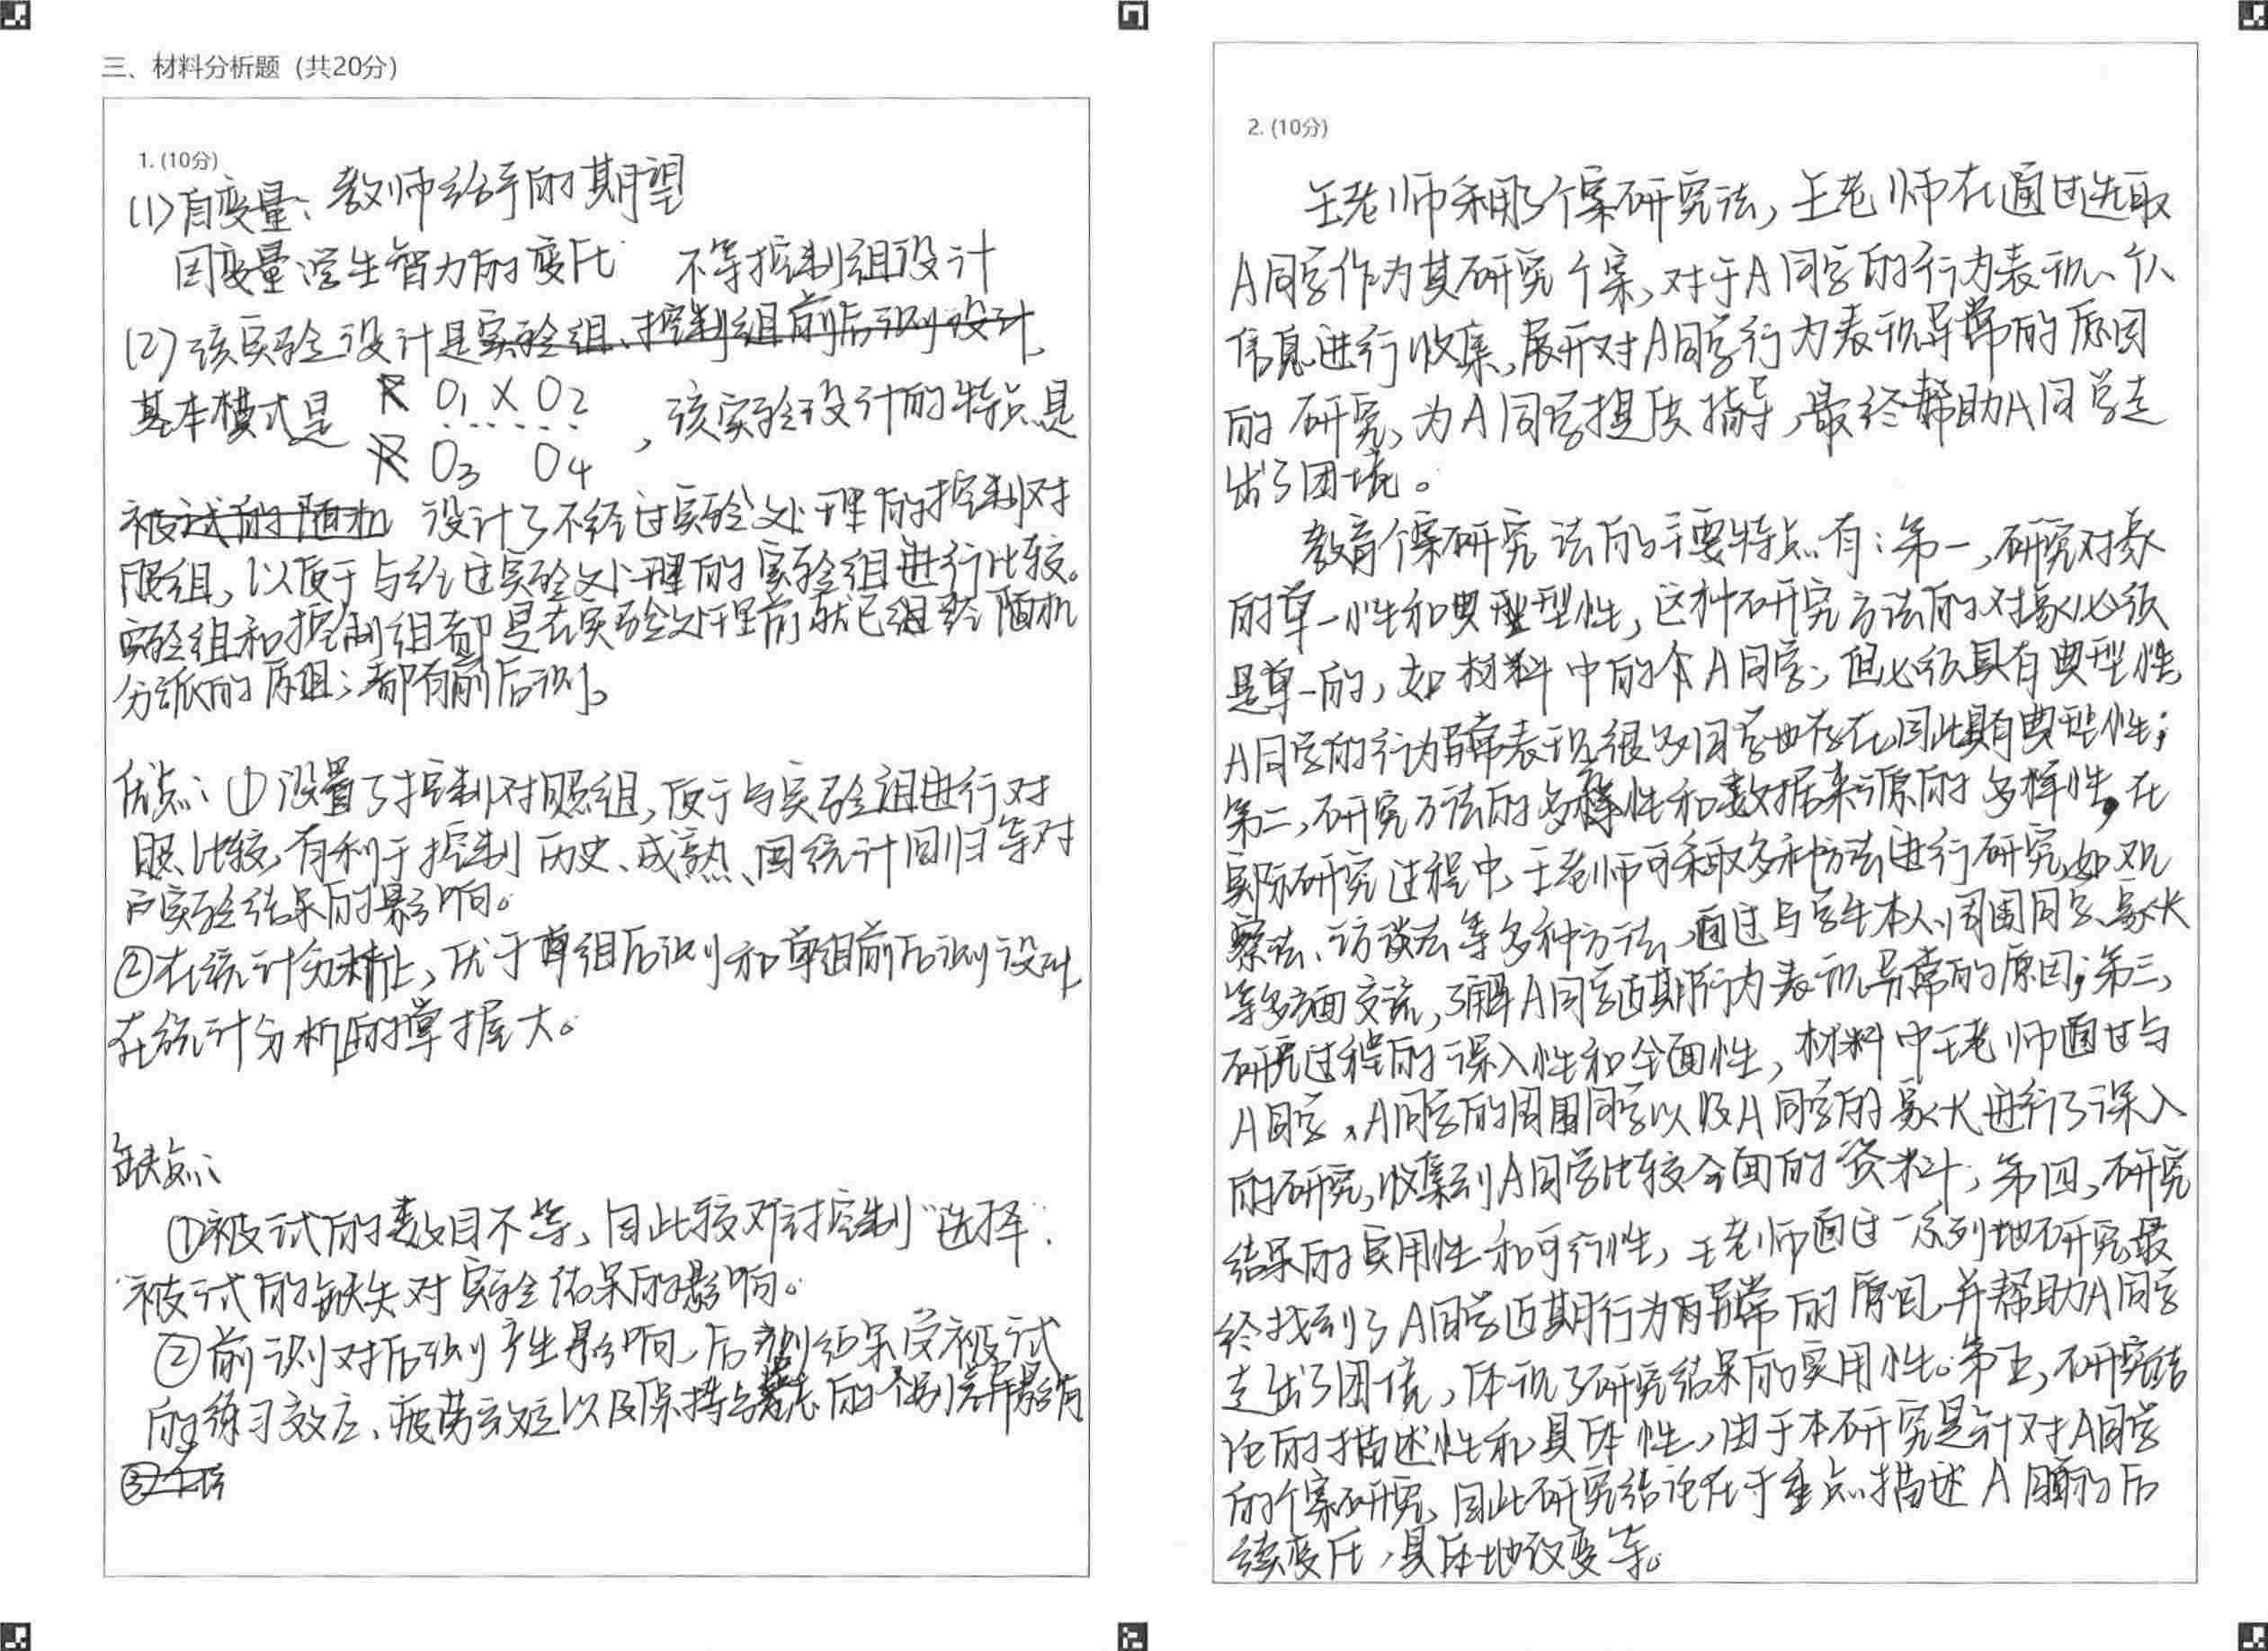 三、材料分析题（共20分）
1. (10分)
(1)自变量：教师给予的期望
因变量：学生智力的变化 不等控制组设计
(2)该实验设计是实验组、控制组前后测设计，
基本模式是 R O1 X O2
R O3 O4 ，该实验设计的特点是
被试的随机 设计了不经过实验处理的控制对
照组，以便于与经过实验处理的实验组进行比较。
实验组和控制组都是在实验处理前就已组经随机
分派的原组；都有前后测。
优点：①设置了控制对照组，便于与实验组进行对
照比较，有利于控制历史、成熟、统计回归等对
实验结果的影响。
②在统计分析上，优于单组后测和单组前后测设计，
在统计分析的掌握大。
缺点：
①被试的数目不等，因此较难控制“选择”
被试的缺失对实验结果的影响。
②前测对后测产生影响，后测结果受被试
的练习效应、疲劳效应以及保持与 的个别差异影响
③
2. (10分)
王老师采用了个案研究法，王老师在通过选取
A同学作为其研究个案，对于A同学的行为表现、个人
信息进行收集，展开对A同学行为表现异常的原因
的研究，为A同学提供指导，最终帮助A同学走
出了困境。
教育个案研究法的主要特点有：第一，研究对象
的单一性和典型性，这种研究方法的对象必须
是单一的，如材料中的个A同学；但必须具有典型性，
A同学的行为异常表现很多同学也存在因此具有典型性；
第二，研究方法的多样性和数据来源的多样性，在
实际研究过程中，王老师可采取多种方法进行研究，如观
察法、访谈法等多种方法，通过与学生本人、周围同学、家长
等多方面交流，了解A同学近期行为表现异常的原因；第三，
研究过程的深入性和全面性，材料中王老师通过与
A同学、A同学的周围同学以及A同学的家长进行了深入
的研究，收集到A同学比较全面的资料；第四，研究
结果的实用性和可行性，王老师通过一系列地研究最
终找到了A同学近期行为有异常的原因，并帮助A同学
走出了困境，体现了研究结果的实用性。第五，研究结
论的描述性和具体性，由于本研究是针对A同学
的个案研究，因此研究结论在于重点描述A同学的后
续变化，具体地改变等。